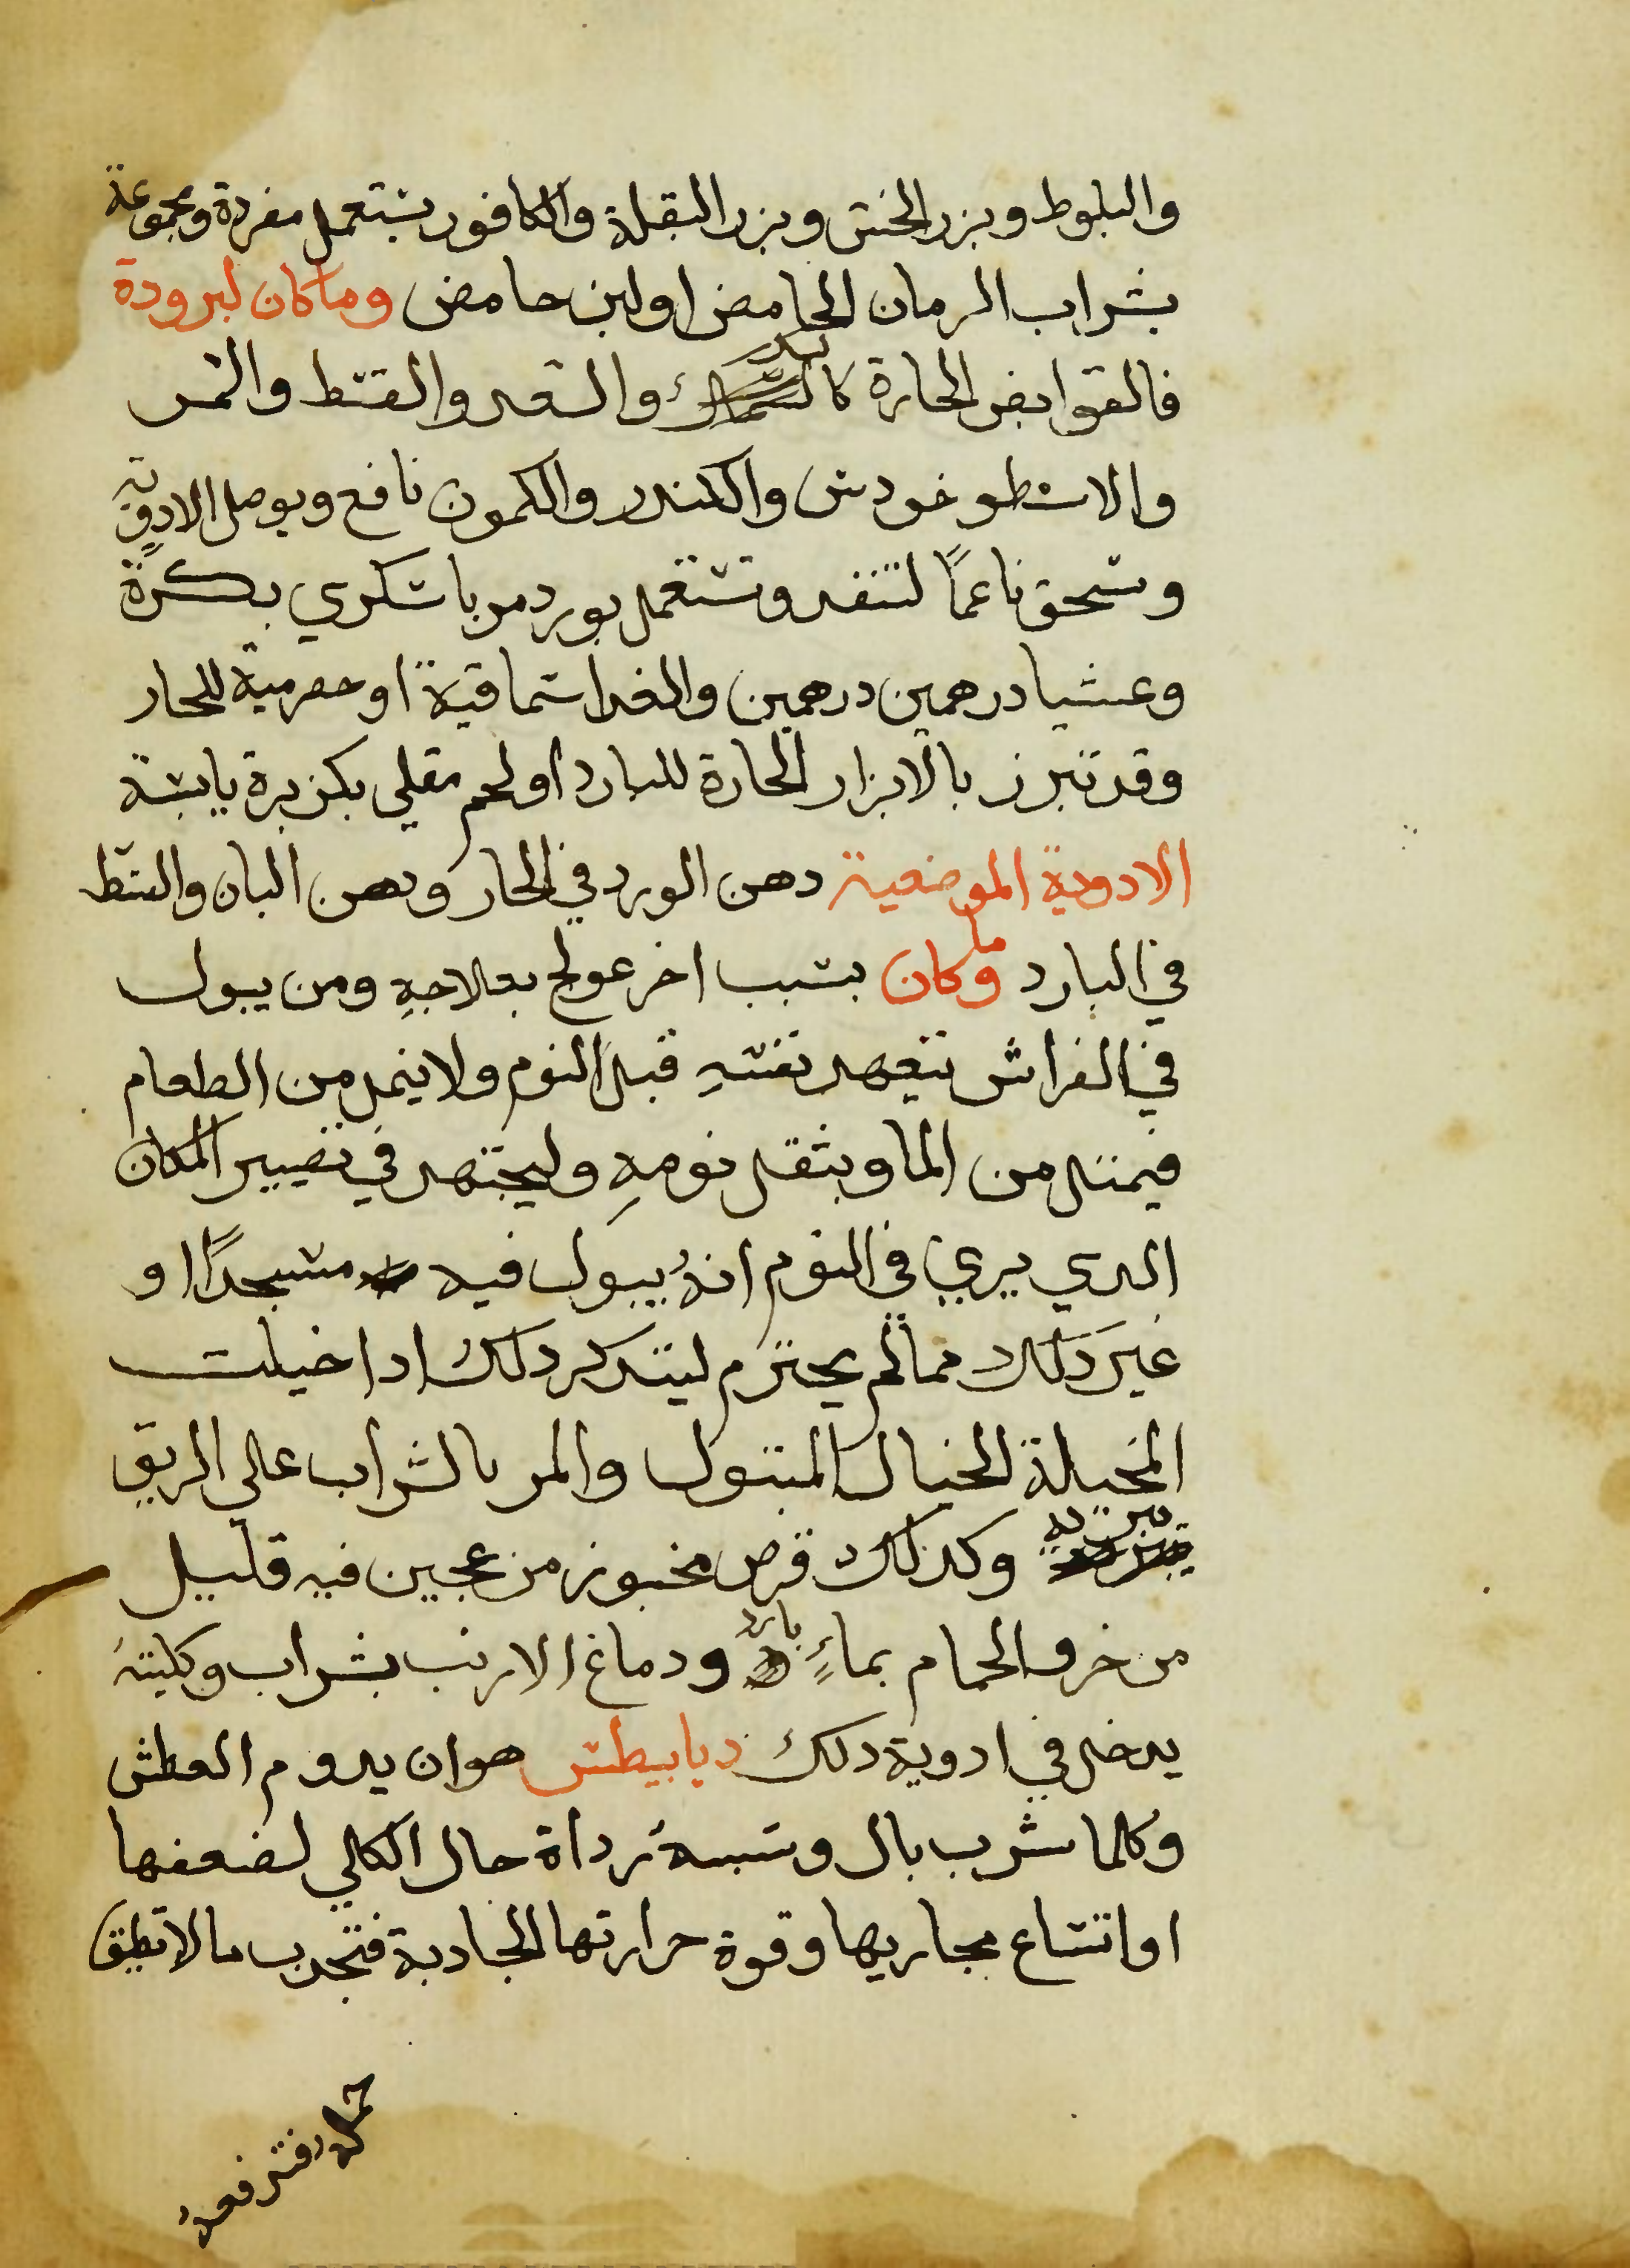 والبلوط وبزر الخس وبزر البقلة والكافور يستعمل مفردة ومجموعة
بشراب الرمان الحامض اولبن حامض وما كان لبرودة
فالقوابض الحارة والسعد والقسط والمر
والاسطوخودس والكندر والكمون نافع ويوصل الادوية
وتسحق ناعمًا لتنفد وتستعمل بورد مربا سكري بكرةً
وعشيا درهمين درهمين والغدا سماقية او حصرمية للحار
وقد تبرز بالابزار الحارة للبارد اولحم مقلي بكزبرة يابسة
الادوية الموضعية دهن الورد في الحار ودهن البان والقسط
في البارد وما كان بسبب اخر عولج بعلاجهِ ومن يبول
في الفراش يتعهد نفسهِ قبل النوم ولا يمل من الطعام
فيمتل من الما ويثقل نومهِ وليجتهد في تغيير المكان
الدي يري في النوم انهُ يبول فيه مسجدًا او
غير دلك مما لم يحترم ليتدكر دلك ادا خيلت
المخيلة الخيال المبتول والمر بالشراب علي الريق
وكدلك قرص مخبوز من عجين فيه قليل
من خرو الحمام بماءٍ بارد ودماغ الارنب بشراب وكليتهُ
يدخل في ادوية دلك ديابيطس هو ان يدوم العطش
وكلما شرب بال وسببهُ رداة حال الكلي لضعفها
او اتساع مجاريها وقوة حرارتها الجادبة فتجدب ما لا تطيق